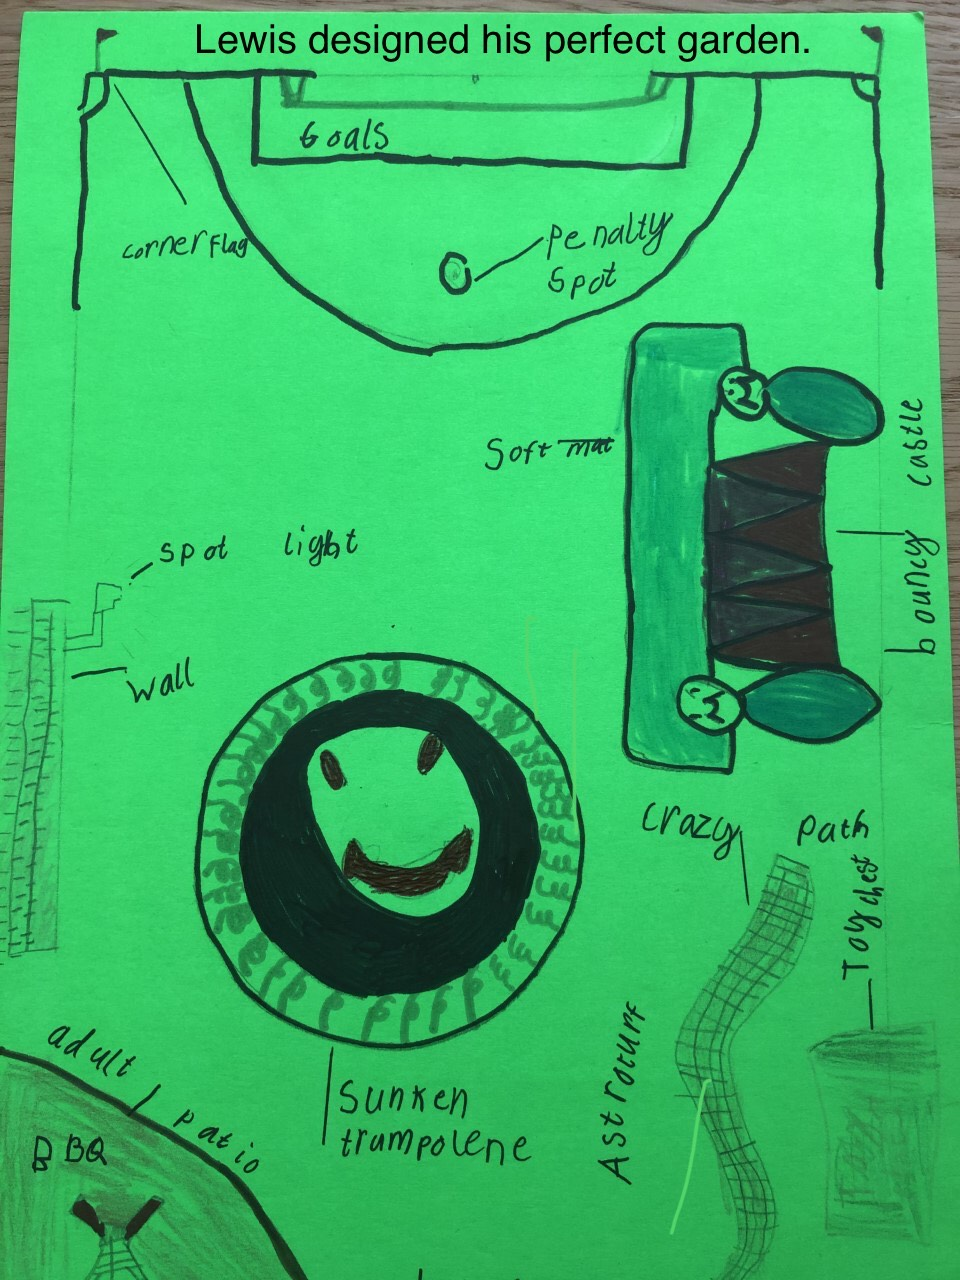 Lewis designed his perfect garden.
Goals
corner flag
Penalty
Spot
Soft mat
bouncy castle
spot light
wall
crazy path
Toy chest
Astroturf
adult patio
BBQ
Sunken
trampolene